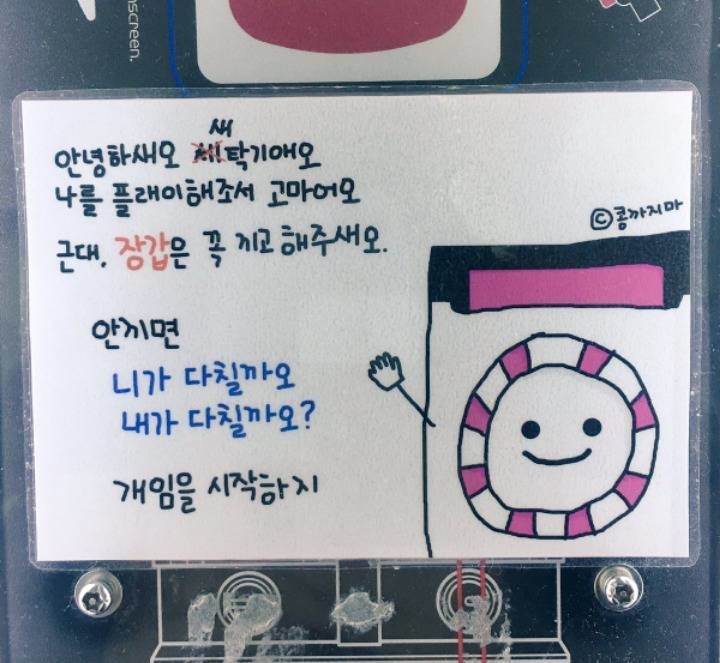 nscreen.
새
안녕하새오 세탁기애오
나를 플래이해조서 고마어오
ⓒ콩까지마
근대, 장갑은 꼭 끼고 해주새오.
안끼면
니가 다칠까오
내가 다칠까오?
개임을 시작하지